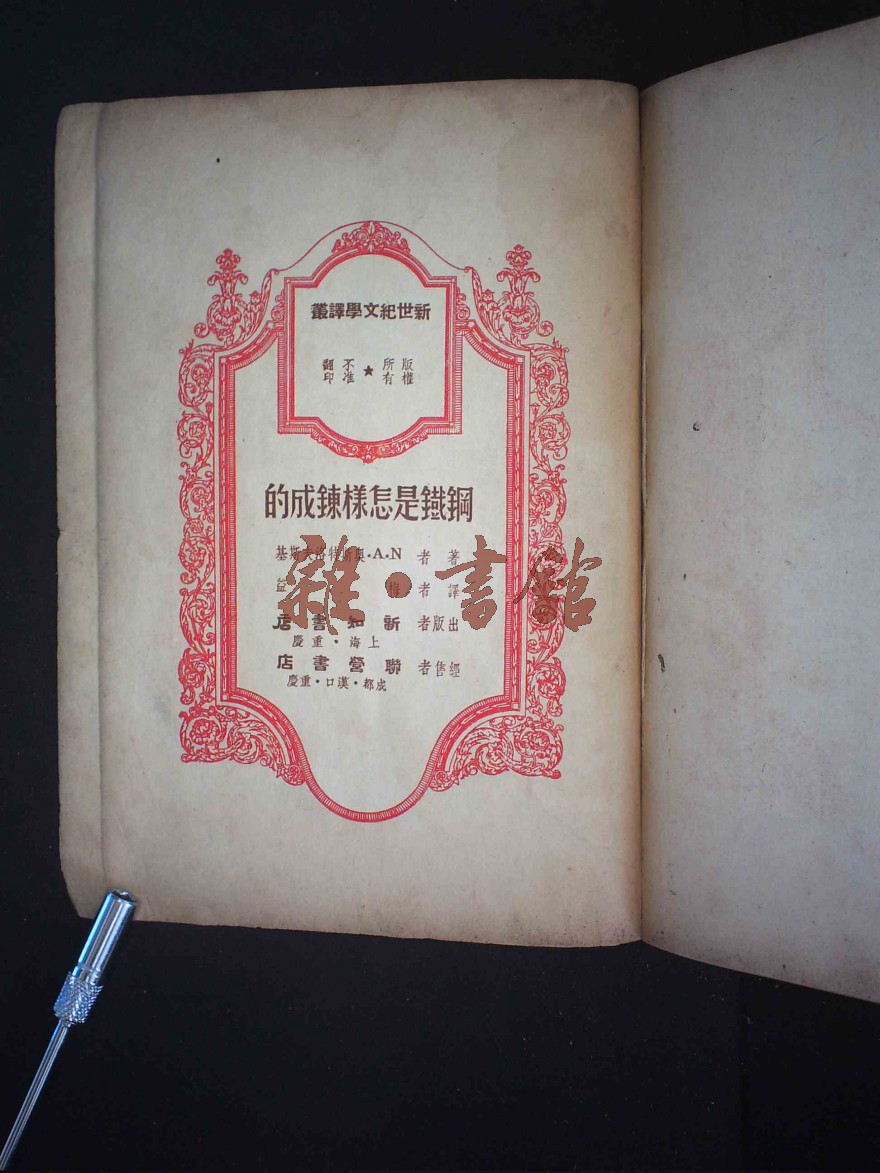 新世紀文學譯叢
版權所有★不准翻印
鋼鐵是怎樣鍊成的
著者 N·A·奧斯特洛夫斯基
譯者 梅益
出版者 新知書店
上海·重慶
經售者 聯營書店
成都·漢口·重慶
雜·書館